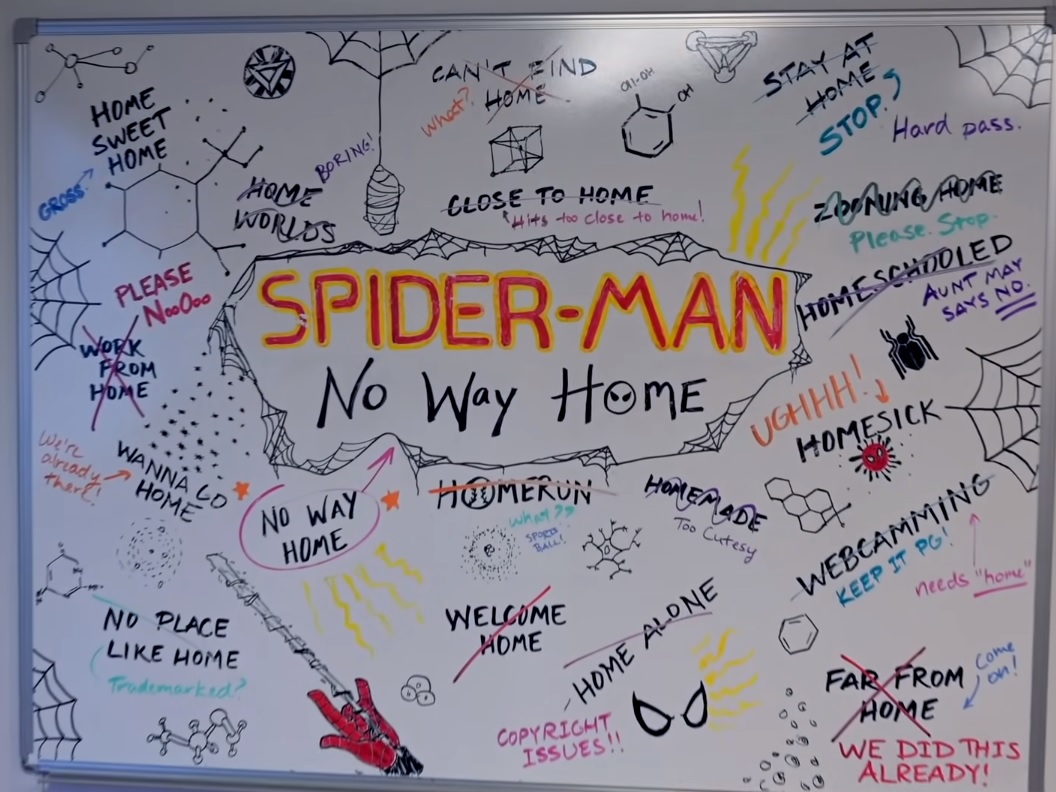 HOME
SWEET
HOME
GROSS
CAN'T FIND
HOME
What?
OH-OH
OH
STAY AT
HOME
STOP.
Hard pass.
BORING!
HOME
WORLDS
CLOSE TO HOME
Hits too close to home!
ZOONING HOME
Please. Stop.
HOMESCHOOLED
AUNT MAY
SAYS NO.
PLEASE
NooOoo
WORK
FROM
HOME
SPIDER-MAN
No Way HOME
UGHHH!
HOMESICK
We're
already
there!
WANNA GO
HOME
NO WAY
HOME
HOMERUN
What??
SPORTS
BALL!
HOMEMADE
Too Cutesy
WEBCAMMING
KEEP IT PG!
needs "home"
NO PLACE
LIKE HOME
Trademarked?
WELCOME
HOME
HOME ALONE
COPYRIGHT
ISSUES!!
FAR FROM
HOME
Come
on!
WE DID THIS
ALREADY!